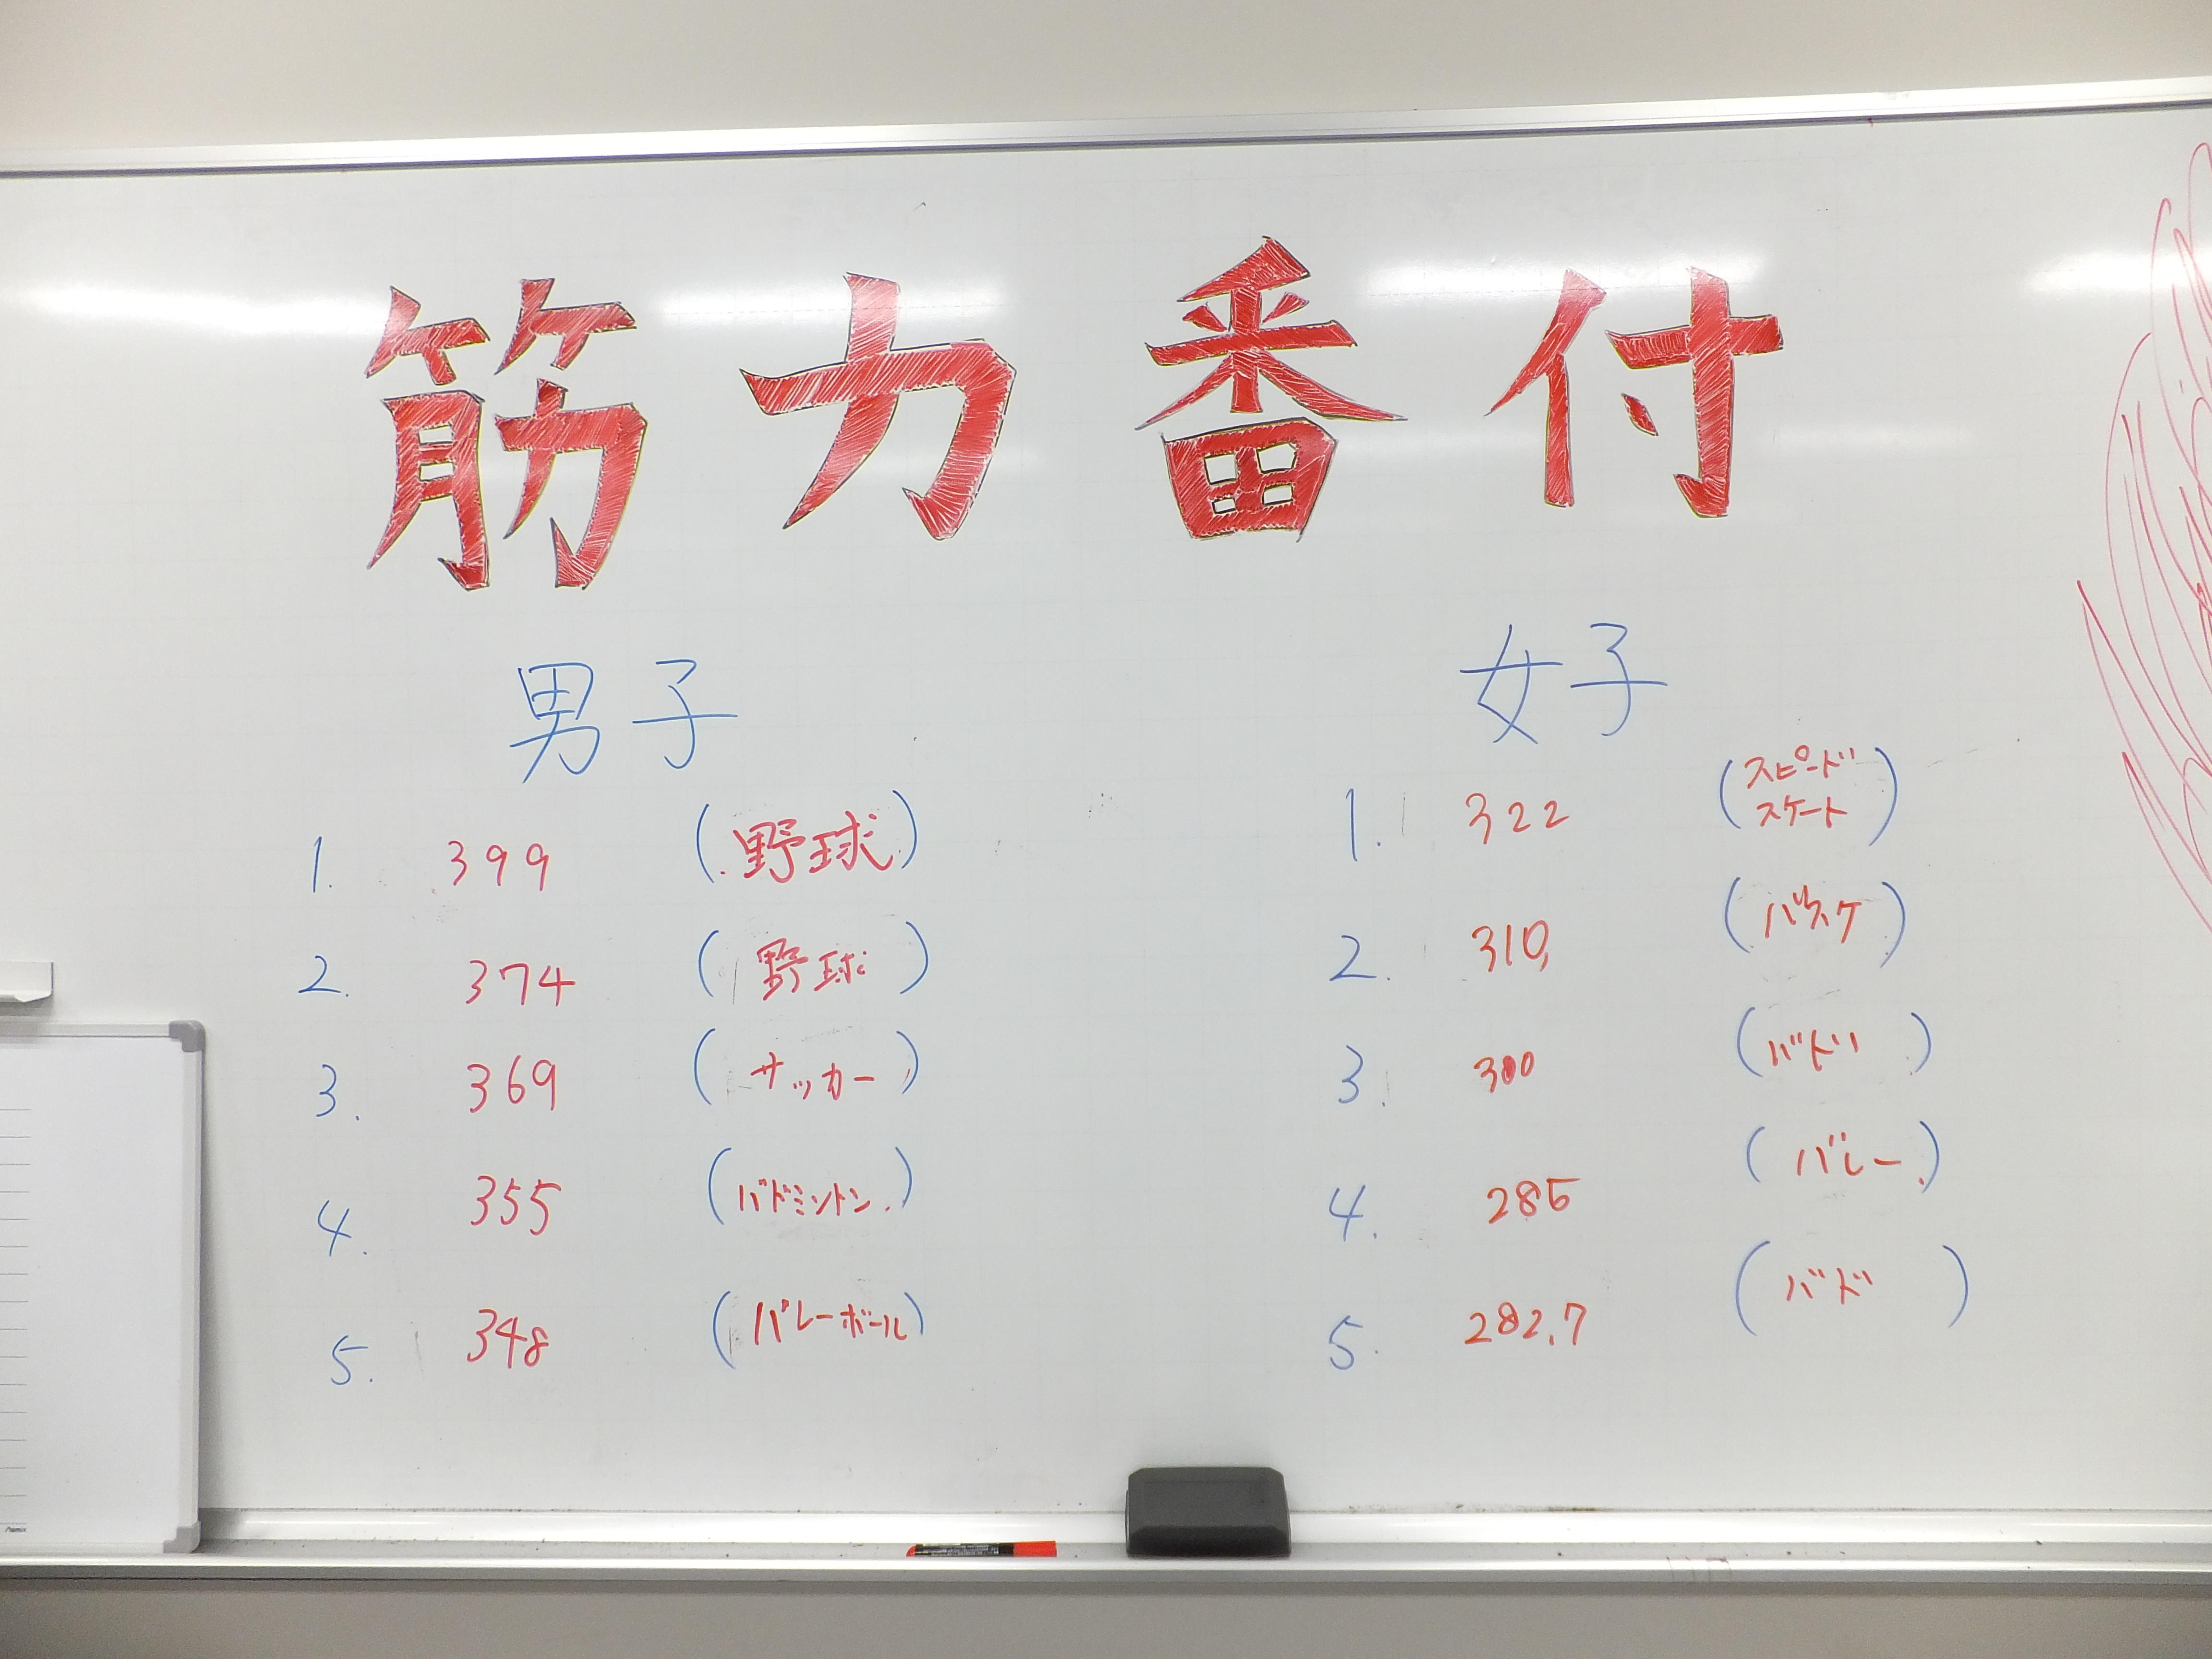 筋力番付
男子
1. 399 (野球)
2. 374 (野球)
3. 369 (サッカー)
4. 355 (バドミントン)
5. 348 (バレーボール)
女子
1. 322 (スピード
スケート)
2. 310 (バスケ)
3. 300 (バド)
4. 285 (バレー)
5. 282.7 (バド)